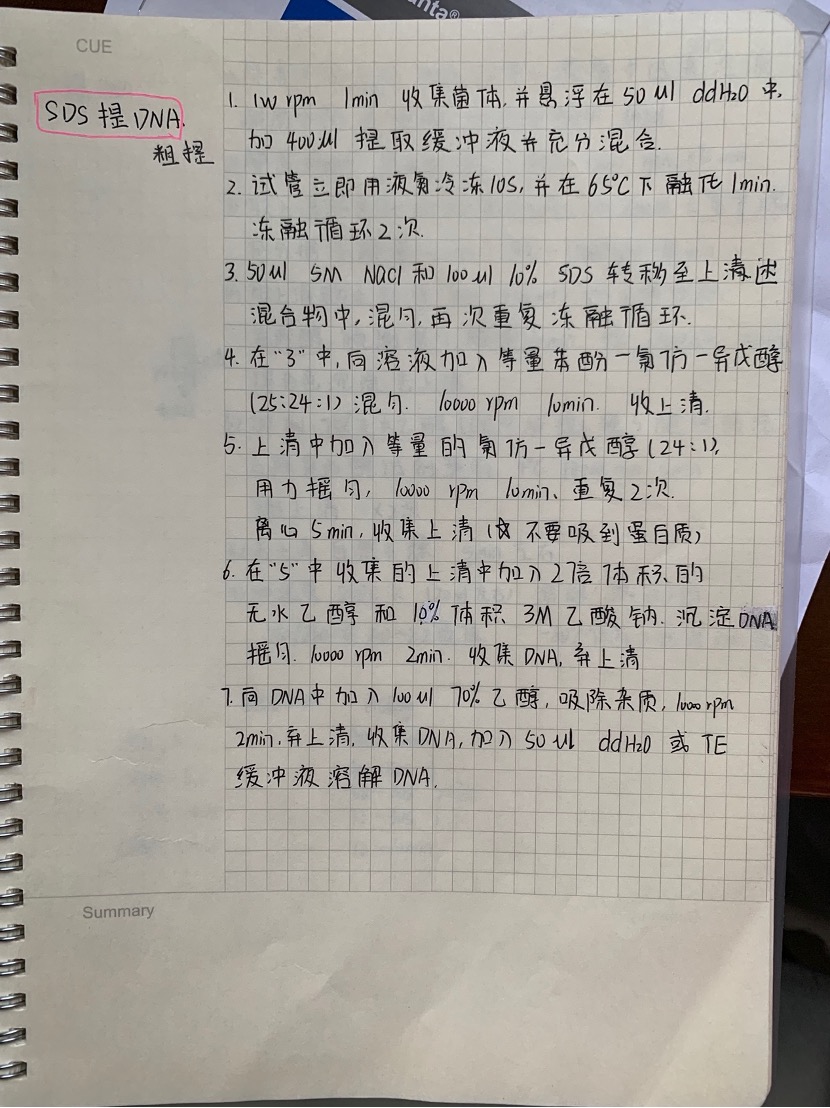 anta®
CUE
SDS提DNA.
粗提
1. 1w rpm 1min 收集菌体,并悬浮在50μl ddH2O中,
加400μl 提取缓冲液并充分混合.
2. 试管立即用液氮冷冻10S,并在65℃下融化1min.
冻融循环2次.
3. 50μl 5M NaCl和100μl 10% SDS 转移至上清述
混合物中,混匀,再次重复冻融循环.
4. 在"3"中,向溶液加入等量苯酚-氯仿-异戊醇
(25:24:1)混匀. 10000 rpm 10min. 收上清.
5. 上清中加入等量的氯仿-异戊醇(24:1),
用力摇匀, 10000 rpm 10min、重复2次.
离心5min,收集上清(不要吸到蛋白质)
6. 在"5"中收集的上清中加入2倍体积的
无水乙醇和10%体积3M乙酸钠. 沉淀DNA
摇匀. 10000 rpm 2min. 收集DNA,弃上清
7. 向DNA中加入100μl 70%乙醇,吸除杂质, 1000 rpm
2min,弃上清,收集DNA,加入50μl ddH2O或TE
缓冲液溶解DNA.
Summary